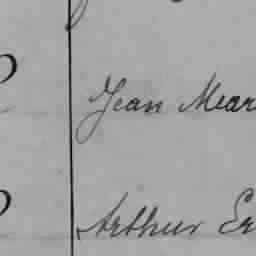 Jean Mear
Arthur Er